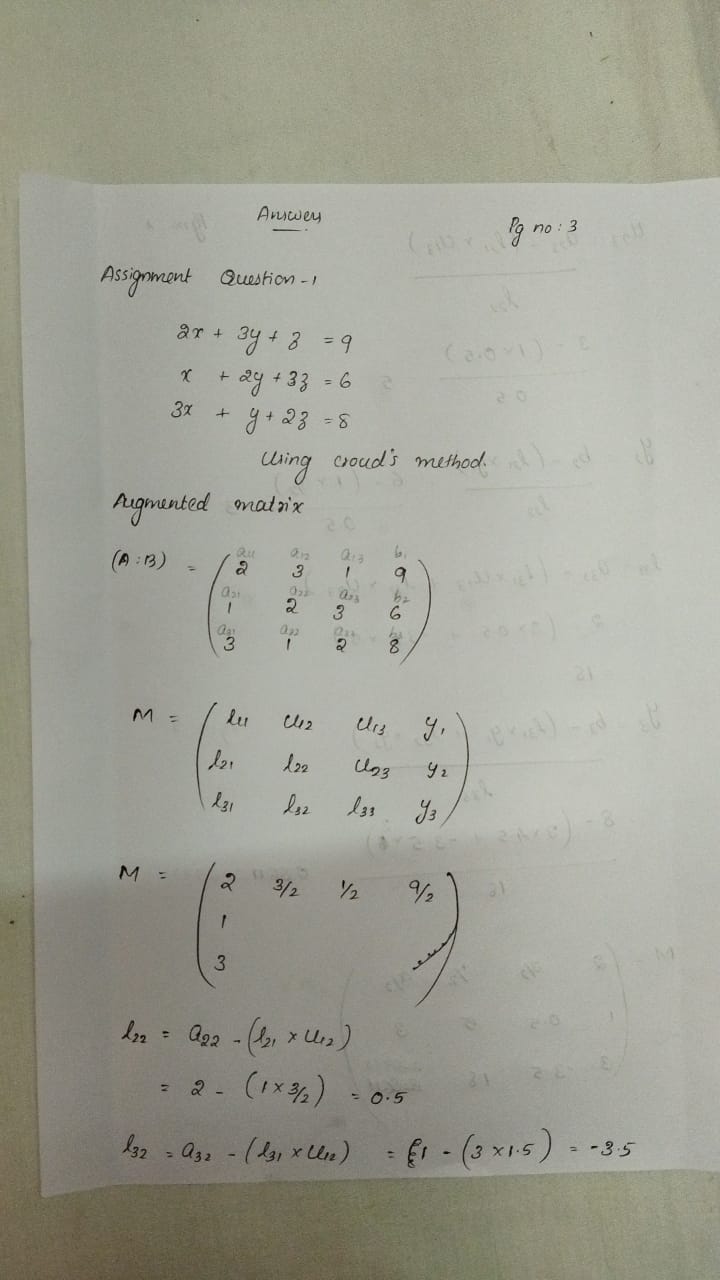 Answer
Pg no : 3
Assignment Question - 1
2x + 3y + z = 9
x + 2y + 3z = 6
3x + y + 2z = 8
Using croud's method.
Augmented matrix
a11 a12 a13 b1
(A : B) = 2 3 1 9
a21 a22 a23 b2
1 2 3 6
3 1 2 8
M = l11 u12 u13 y1
l21 l22 u23 y2
l31 l32 l33 y3
M = 2 3/2 1/2 9/2
1
3
l22 = a22 - (l21 x u12)
= 2 - (1 x 3/2) = 0.5
l32 = a32 - (l31 x u12) = 1 - (3 x 1.5) = -3.5